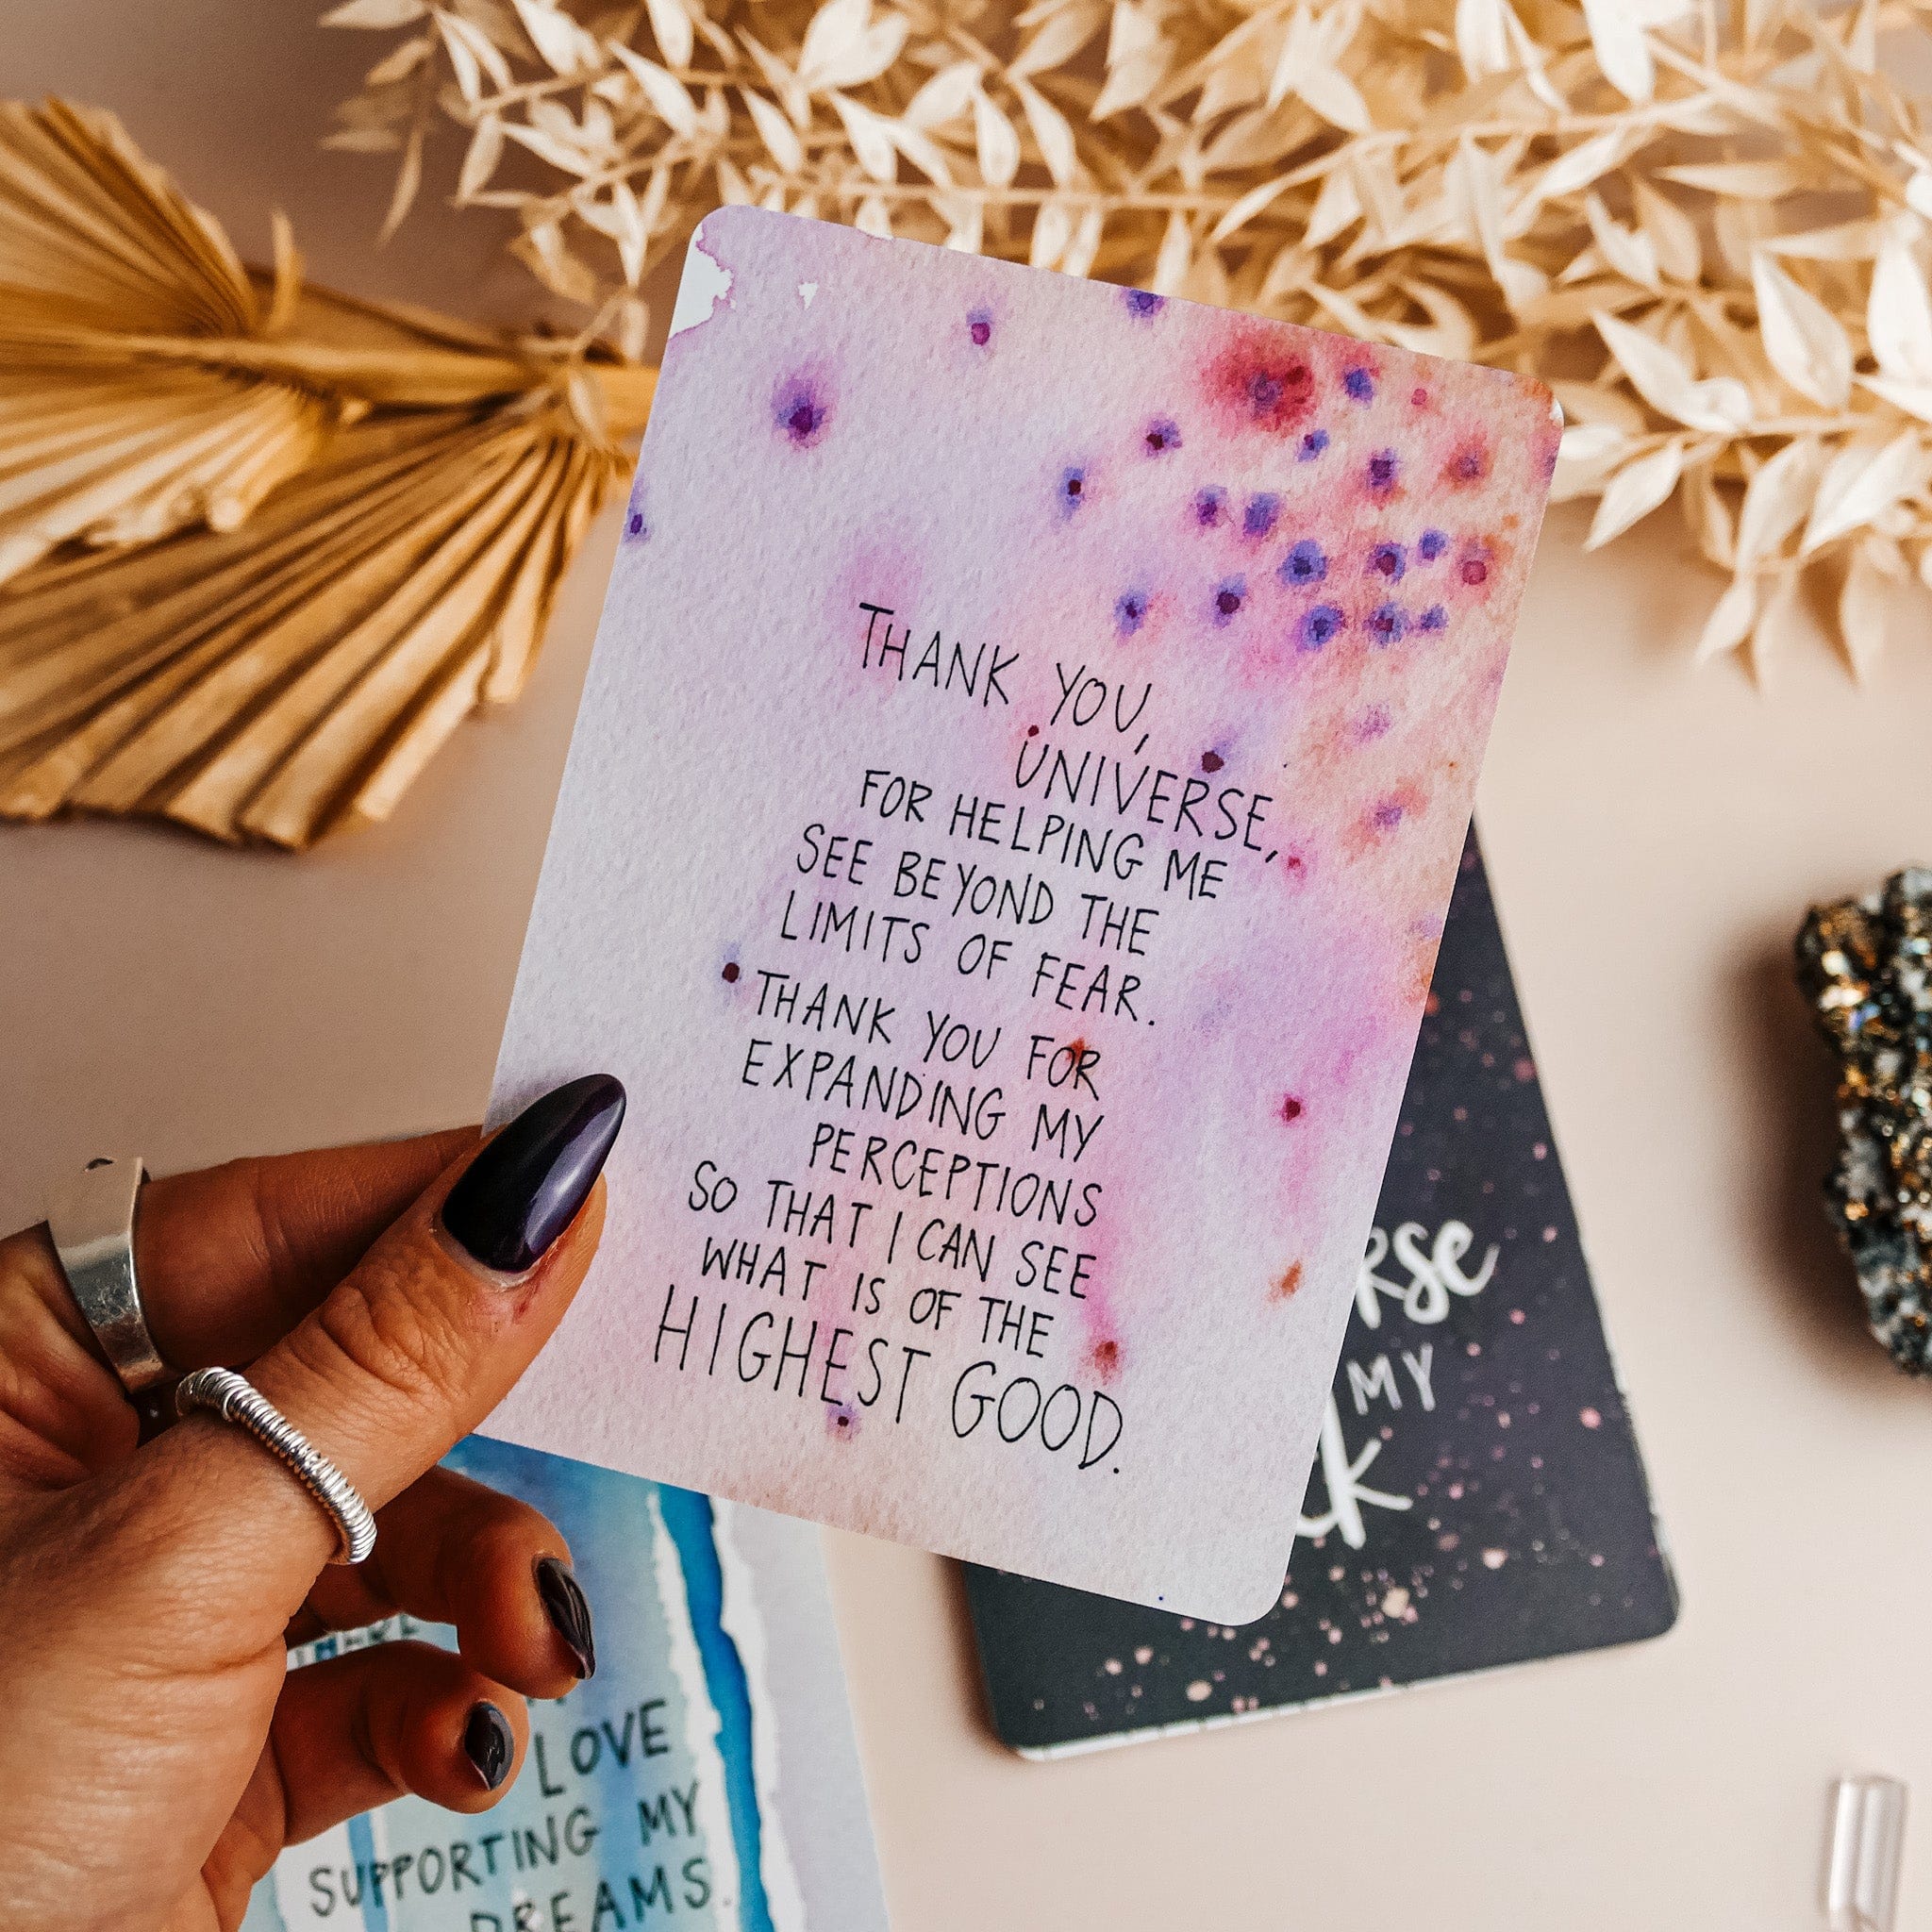 THANK YOU,
UNIVERSE,
FOR HELPING ME
SEE BEYOND THE
LIMITS OF FEAR.
THANK YOU FOR
EXPANDING MY
PERCEPTIONS
SO THAT I CAN SEE
WHAT IS OF THE
HIGHEST GOOD.
MY
LOVE
SUPPORTING MY
DREAMS.